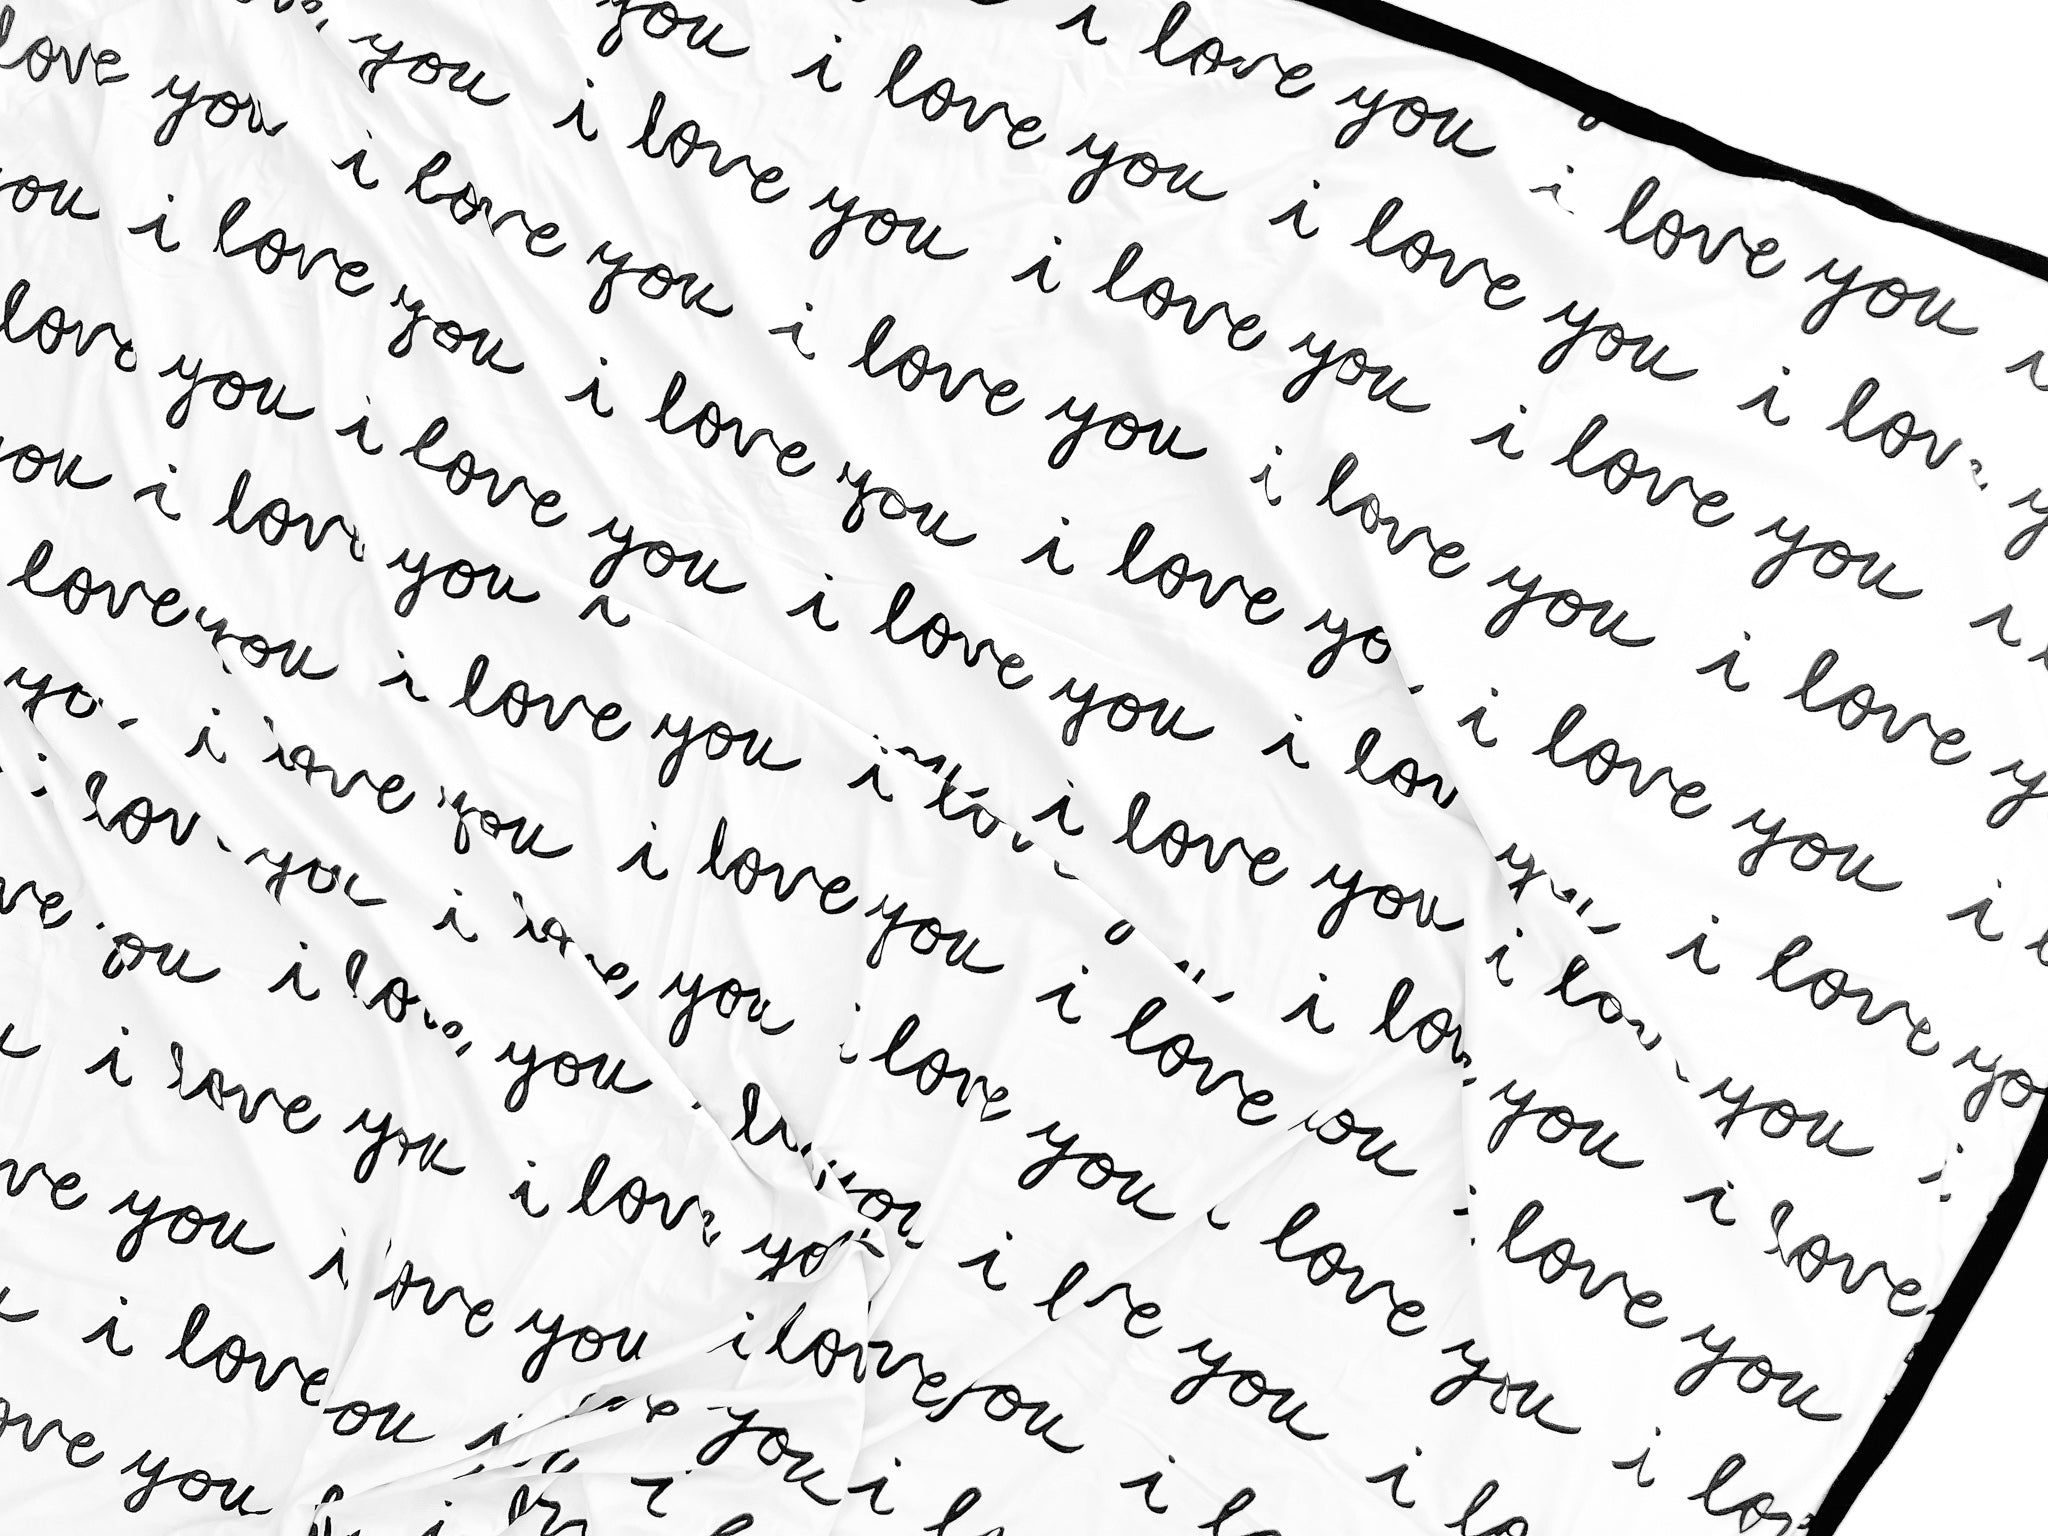 i love you i love you
you i love you i love you i
you i love you i love you i
love you i love you i love you i love you i
you i love you i love you i love you i love
love you i love you i love you i love you
you i love you i love you i love you i
love you i love you i love you i love you
you i love you i love you i love you
i love you i love you i love you i love
love you i love you i love you i love you
i love you i love you i love you i
love you i love you i love you i
i love you i love you i
love you i